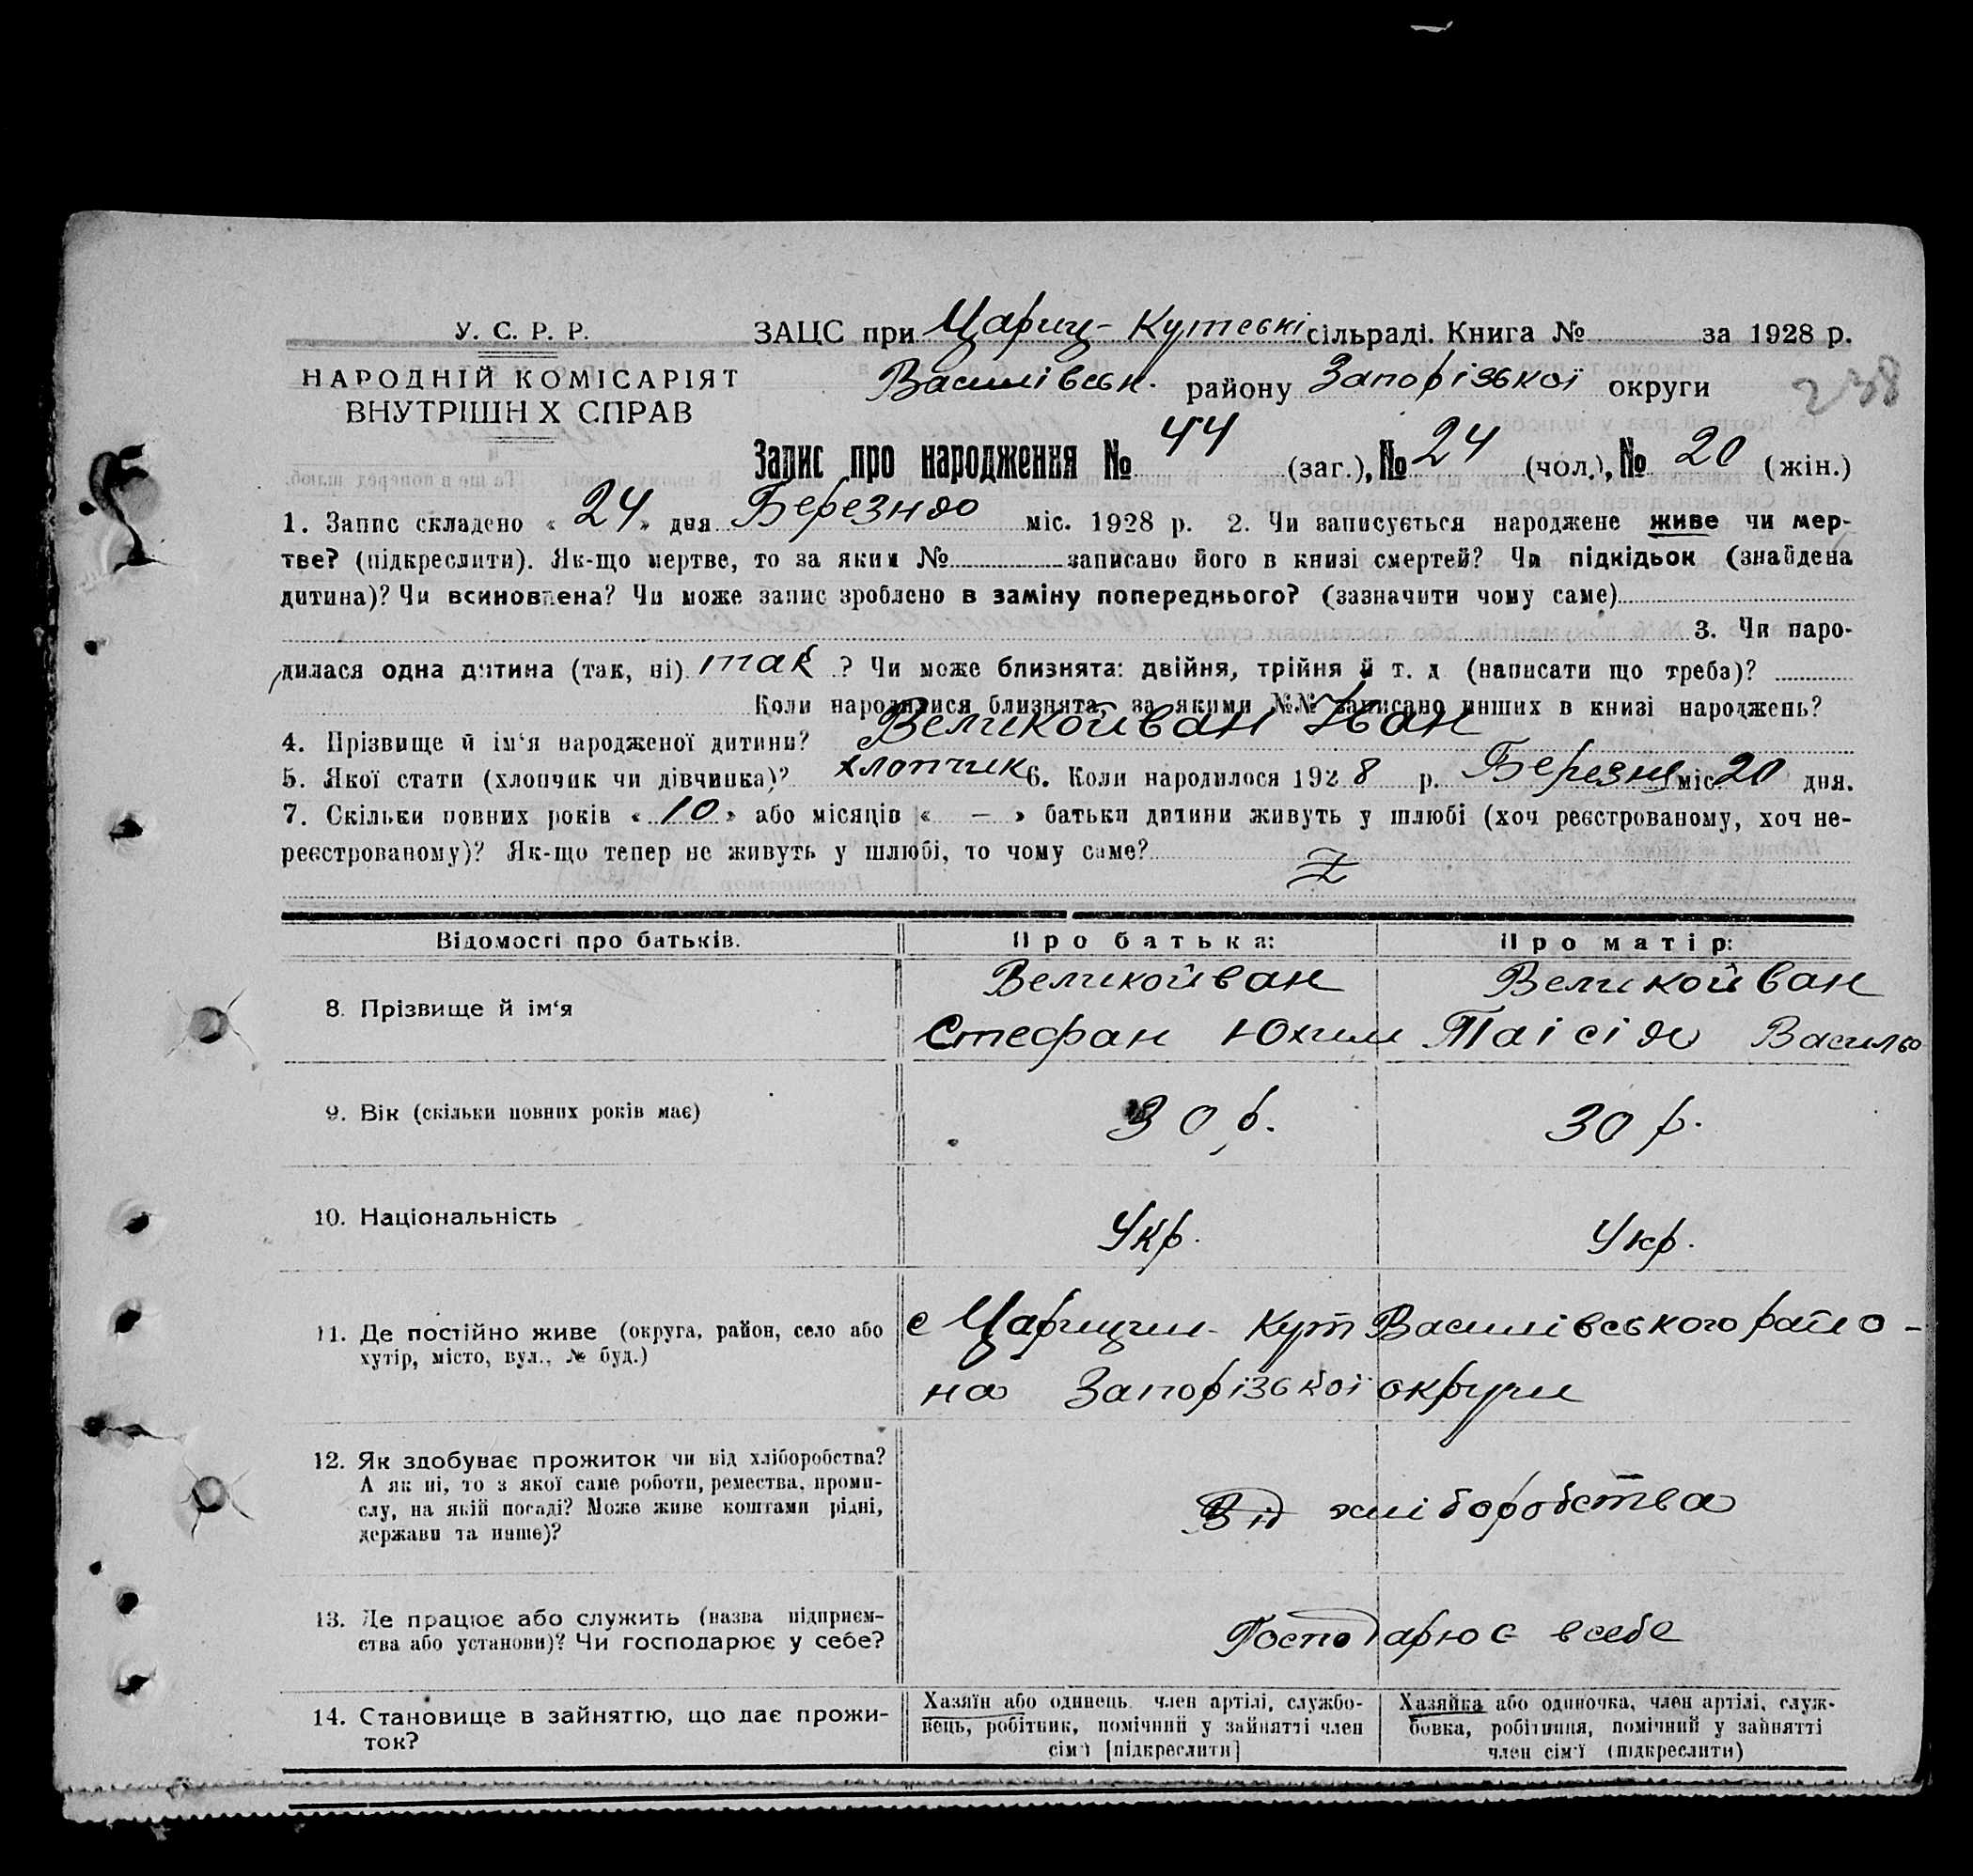 У. С. Р. Р.
НАРОДНІЙ КОМІСАРІЯТ
ВНУТРІШН Х СПРАВ
ЗАЦС при Цариц-Кутевскі сільраді. Книга № за 1928 р.
Василівськ. району Запорізької округи
238
Запис про народження № 44 (заг.), № 24 (чол.), № 20 (жін.)
1. Запис складено « 24 » дня Березня міс. 1928 р. 2. Чи записується народжене живе чи мер-
тве? (підкреслити). Як-що мертве, то за яким № записано його в книзі смертей? Чи підкідьок (знайдена
дитина)? Чи всиновлена? Чи може запис зроблено в заміну попереднього? (зазначити чому саме)
3. Чи наро-
дилася одна дитина (так, ні) так ? Чи може близнята: двійня, трійня й т. д (написати що треба)?
Коли народилися близнята, за якими №№ записано инших в книзі народжень?
4. Прізвище й ім'я народженої дитини? Великойван Іван
5. Якої стати (хлопчик чи дівчинка)? хлопчик 6. Коли народилося 1928 р. Березня міс. 20 дня.
7. Скільки повних років « 10 » або місяців « — » батьки дитини живуть у шлюбі (хоч реєстрованому, хоч не-
реєстрованому)? Як-що тепер не живуть у шлюбі, то чому саме?
Відомості про батьків. Про батька: Про матір:
8. Прізвище й ім'я
Великойван Великойван
Стефан Юхим Таісія Василь
9. Вік (скільки повних років має) 30 р. 30 р.
10. Національність Укр. Укр.
11. Де постійно живе (округа, район, село або
хутір, місто, вул., № буд.)
с Царицин-Кут Василівського райо-
на Запорізької округи
12. Як здобуває прожиток чи від хліборобства?
А як ні, то з якої саме роботи, ремества, проми-
слу, на якій посаді? Може живе коштами рідні,
держави та инше)?
Від хліборобства
13. Де працює або служить (назва підприєм-
ства або установи)? Чи господарює у себе?
Господарює в себе
14. Становище в зайняттю, що дає прожи-
ток?
Хазяїн або одинець. член артілі, службо-
вець, робітник, помічний у зайнятті член
сім'ї [підкреслити]
Хазяйка або одиночка, член артілі, служ-
бовка, робітниця, помічний у зайнятті
член сім'ї (підкреслити)